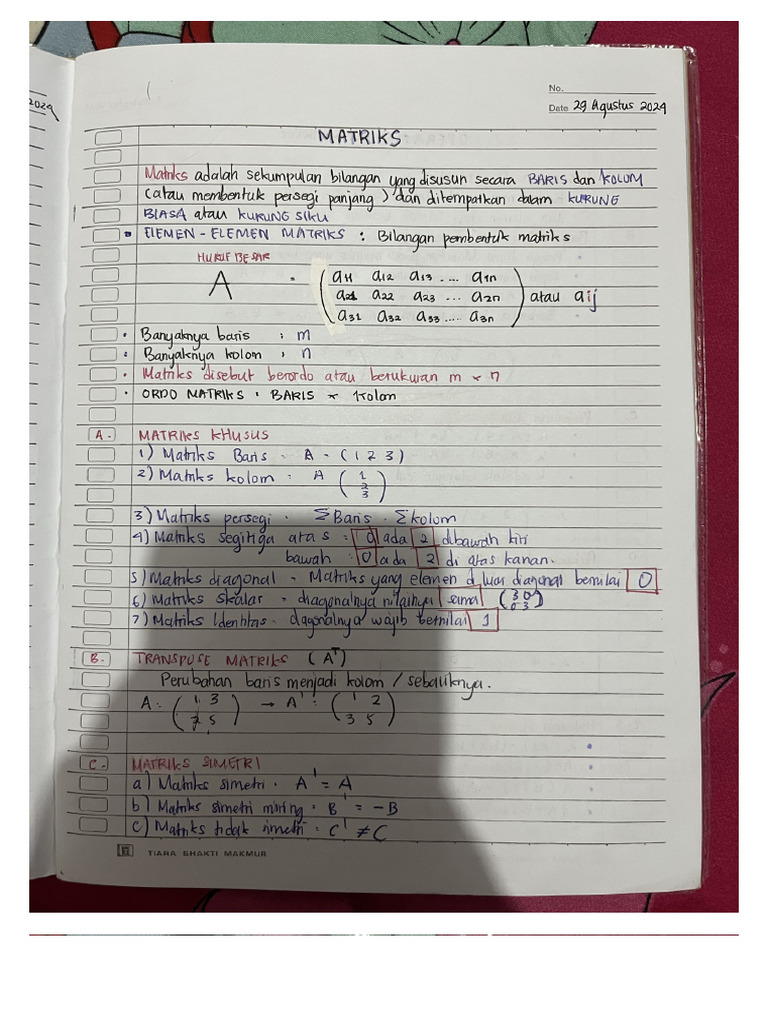 2024
No.
Date 29 Agustus 2024
MATRIKS
Matriks adalah sekumpulan bilangan yang disusun secara BARIS dan KOLOM
(atau membentuk persegi panjang) dan ditempatkan dalam KURUNG
BIASA atau KURUNG SIKU
• ELEMEN - ELEMEN MATRIKS : Bilangan pembentuk matriks
HURUF BESAR
A = ( a11 a12 a13 .... a1n
a21 a22 a23 ... a2n ) atau aij
a31 a32 a33 .... a3n
• Banyaknya baris : m
• Banyaknya kolom : n
• Matriks disebut berordo atau berukuran m × n
• ORDO MATRIKS : BARIS × kolom
A. MATRIKS KHUSUS
1) Matriks Baris = A = (1 2 3)
2) Matriks kolom : A ( 1
2
3 )
3) Matriks persegi = ΣBaris = Σkolom
4) Matriks segitiga atas = 0 ada 2 dibawah kiri
bawah : 0 ada 2 di atas kanan.
5) Matriks diagonal = Matriks yang elemen d luar diagonal bernilai 0
6) Matriks skalar = diagonalnya nilainya sama ( 3 0
0 3 )
7) Matriks Identitas = diagonalnya wajib bernilai 1
B. TRANSPOSE MATRIKS (Aᵀ)
Perubahan baris menjadi kolom / sebaliknya.
A = ( 1 3 → A' : ( 1 2
2 5 ) 3 5 )
C. MATRIKS SIMETRI
a) Matriks simetri = A' = A
b) Matriks simetri miring = B' = -B
c) Matriks tidak simetri = C' ≠ C
TIARA BHAKTI MAKMUR